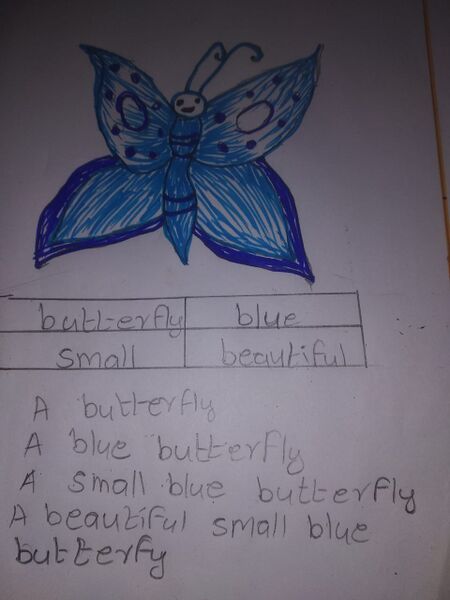 butterfly blue
small beautiful
A butterfly
A blue butterfly
A small blue butterfly
A beautiful small blue
butterfy